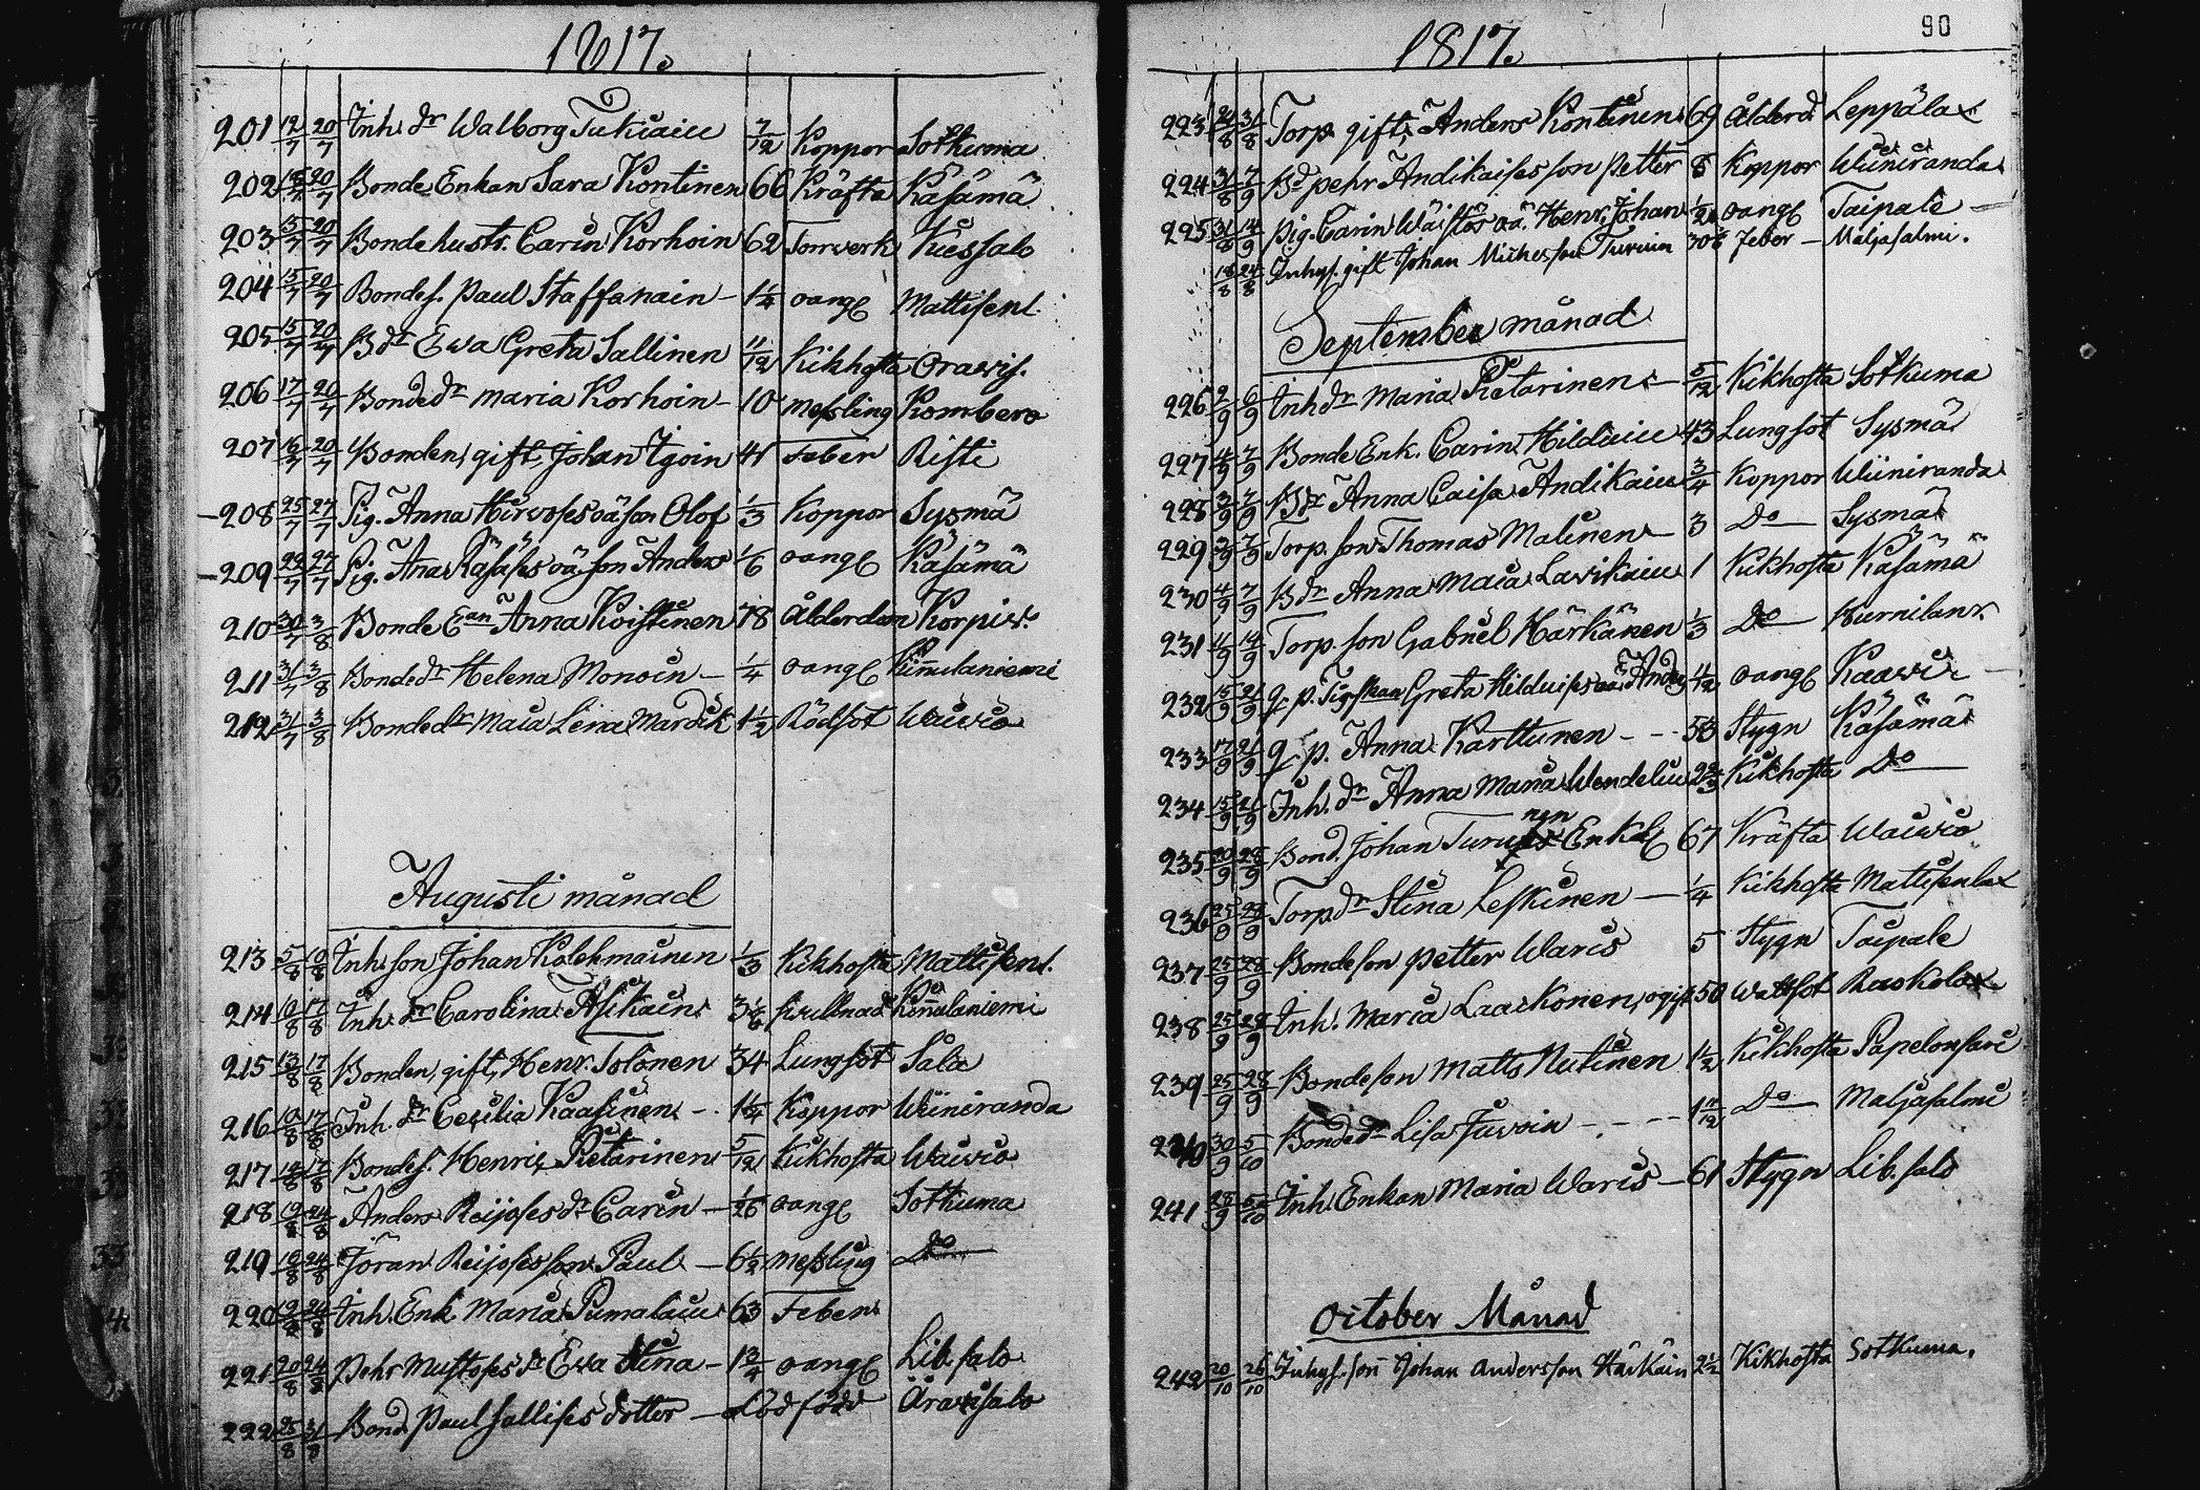 1817.
201 12/7 20/7 Inh. dr Walborg Tukiain 7/12 Koppor Sotkuma
202 18/7 20/7 Bonde Enkan Sara Kontinen 66 Kräfta Käsämä
203 15/7 20/7 Bonde hustr. Carin Korhoin 62 Torrverk Kuessalo
204 15/7 20/7 Bondes. Paul Staffanain – 1 1/4 oangl Mattisenl.
205 15/7 20/7 B dr Ewa Greta Sallinen 11/12 Kikhosta Orawis.
206 17/7 20/7 Bonde dr Maria Korhoin – 10 Messling Kombero
207 16/7 20/7 Bonden, gift, Johan Igoin 41 Feber Risti
– 208 25/7 27/7 Pig. Anna Hirvoses oä son Olof 1/3 Koppor Sysmä
– 209 22/7 27/7 Pig. Ana Räsäses oä. son Anders 1/6 oangl Käsämä
210 30/7 3/8 Bonde E an Anna Koistinen 78 Ålderdom Korpiv.
211 31/7 3/8 Bonde dr Helena Monoin – 1/4 oangl Kinnulaniemi
212 31/7 3/8 Bonde dr Maia Lena Mardik 1 1/2 Rödsot Waivio
Augusti månad
213 5/8 10/8 Inh. son Johan Kolehmainen 1/3 Kikhosta Mattisenl.
214 10/8 17/8 Inh. dr Carolina Asikain 3 1/6 Kullnad Kinnulaniemi
215 13/8 17/8 Bonden, gift, Henr. Tolonen 34 Lungsot Sala
216 10/8 17/8 Inh. dr Cecilia Kaasinen – . 1 1/4 Koppor Wiiniranda
217 12/8 17/8 Bondes. Henric Pietarinen 5/12 Kikhosta Waivio
218 19/8 24/8 Anders Reijoses dr Carin – 1/26 oangl Sotkuma
219 19/8 24/8 Jöran Reijoses son Paul – 6 1/2 Messling Do
220 19/8 24/8 Inh. Enk. Maria Pumalain 63 Feber
221 20/8 24/8 Pehr Mustoses dr Ewa Stina – 1 3/4 oangl Lib. salo
222 25/8 31/8 Bond. Paul Sallises dotter – död född Arawisalo
90
1817.
223 29/8 31/8 Torp. gift, Anders Kontinen 69 Ålderd Leppälax
224 31/8 7/9 Bd Pehr Andikaises son Petter 8 Koppor Wiiniranda
225 31/8 14/9 Pig. Carin Wäistös oä. Henr. Johan oangl Taipale –
18/8 24/8 Inhys. gift Johan Michelsson Turuin 30 Feber – Maljasalmi.
September månad
226 2/9 6/9 Inh dr Maria Pietarinen – 5/12 Kikhosta Sotkuma
227 4/9 7/9 Bonde Enk. Carin Hilduin 43 Lungsot Sysmä
228 3/9 7/9 B dr Anna Caisa Andikain 3/4 Koppor Wiiniranda
229 3/9 7/9 Torp. son Thomas Malinen – 3 Do Sysmä
230 4/9 7/9 B dr Anna Maia Lavikain 1 Kikhosta Käsämä
231 11/9 14/9 Torp. son Gabriel Härkänen 1/3 Do Kurnilanr.
232 15/9 21/9 q. p. Greta Hilduises oä. Ands 1/12 oangl Kaavi –
233 17/9 21/9 q. p. Anna Karttunen – – 53 Stygn Käsämä
234 15/9 21/9 Inh. dr Anna Maria Wendelin 2 2/3 Kikhosta Do
235 20/9 28/9 Bond. Johan Turunen Enka 67 Kräfta Waivio
236 25/9 28/9 Torp dr Stina Leskinen – 1/4 Kikhosta Mattisenlax
237 25/9 28/9 Bondeson Petter Waris 5 Stygn Taipale
238 25/9 28/9 Inh. Maria Laakkonen, ogift 50 Wattsot Raskelax
239 25/9 28/9 Bondeson Matts Nutinen 1 1/2 Kikhosta Papelonsari
240 30/9 5/10 Bonde dr Lisa Juvoin – . – – 1 11/12 Do Maljasalmi
241 28/9 5/10 Inh. Enkan Maria Waris – 61 Stygn Lib. salo
October Månad
242 20/10 26/10 Inhys. son Johan Andersson Härkäin 2 1/2 Kikhosta Sotkuma.